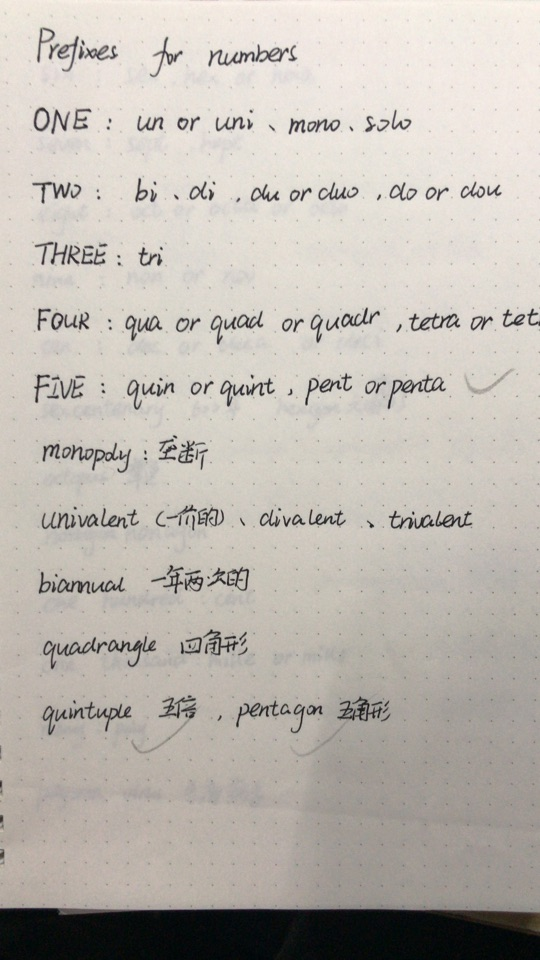 Prefixes for numbers
ONE : un or uni 、mono、solo
TWO : bi 、di , du or duo , do or dou
THREE : tri
FOUR : qua or quad or quadr , tetra or tet
FIVE : quin or quint , pent or penta
monopoly : 垄断
univalent (一价的)、divalent 、trivalent
biannual 一年两次的
quadrangle 四角形
quintuple 五倍 , pentagon 五角形